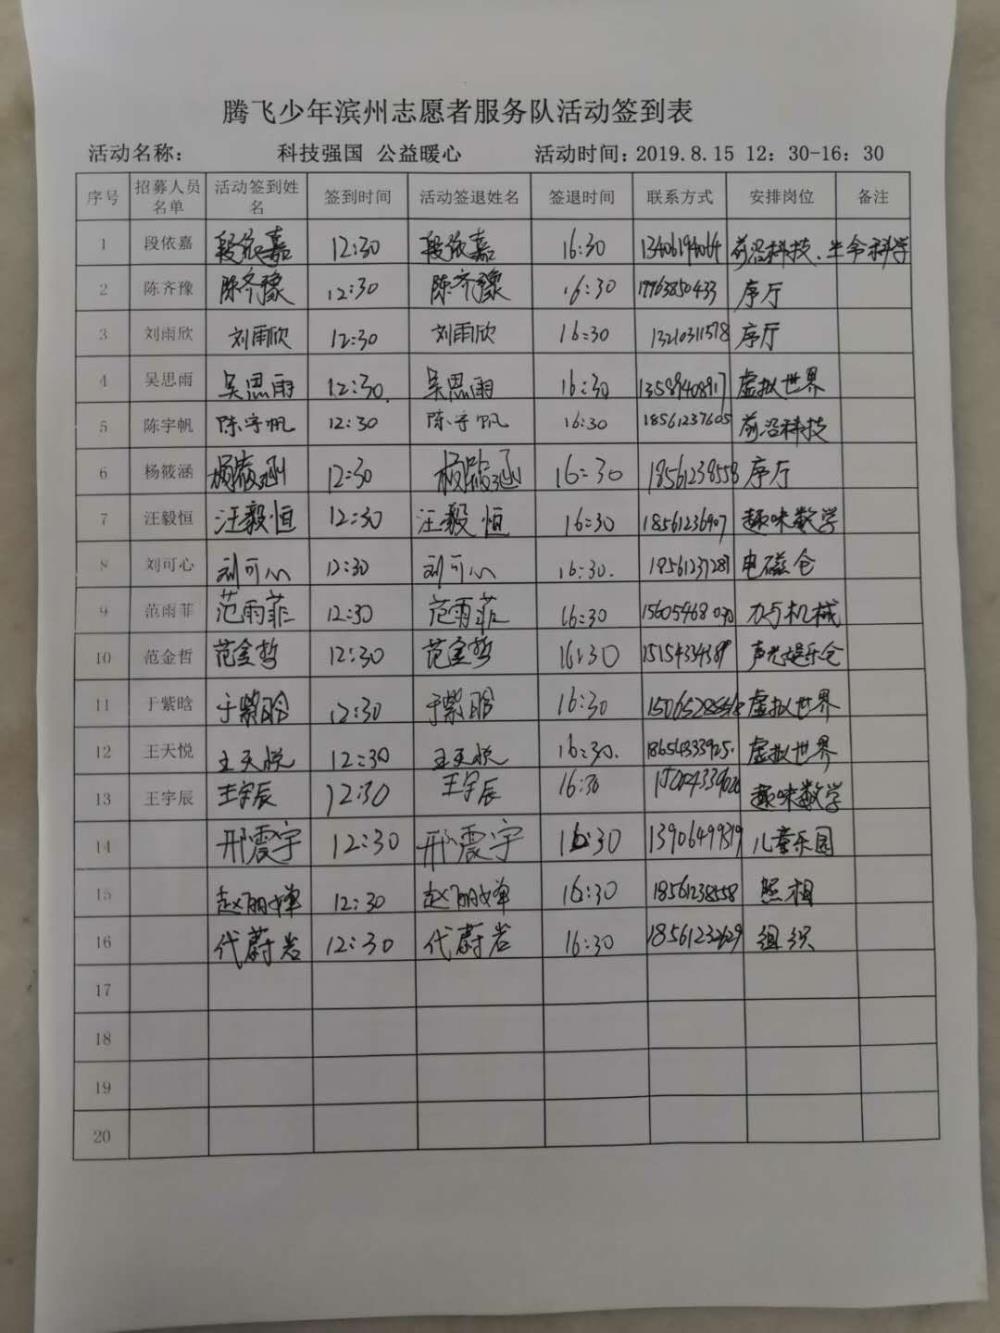 腾飞少年滨州志愿者服务队活动签到表
活动名称: 科技强国 公益暖心 活动时间:2019.8.15 12:30-16:30
序号 招募人员名单 活动签到姓名 签到时间 活动签退姓名 签退时间 联系方式 安排岗位 备注
1 段依嘉 段依嘉 12:30 段依嘉 16:30 前沿科技、生命科学
2 陈齐豫 陈齐豫 12:30 陈齐豫 16:30 17763850433 序厅
3 刘雨欣 刘雨欣 12:30 刘雨欣 16:30 13210311578 序厅
4 吴思雨 吴思雨 12:30. 吴思雨 16:30 13589408917 虚拟世界
5 陈宇帆 陈宇帆 12:30 陈宇帆 16:30 18561237605 前沿科技
6 杨筱涵 杨筱涵 12:30 杨筱涵 16:30 18561238558 序厅
7 汪毅恒 汪毅恒 12:30 汪毅恒 16:30 18561236907 趣味数学
8 刘可心 刘可心 12:30 刘可心 16:30. 18561237281 电磁仓
9 范雨菲 范雨菲 12:30 范雨菲 16:30 力与机械
10 范金哲 范金哲 12:30 范金哲 16:30 15154334389 声光娱乐仓
11 于紫晗 于紫晗 12:30 于紫晗 16:30 虚拟世界
12 王天悦 王天悦 12:30 王天悦 16:30. 18654333925. 虚拟世界
13 王宇辰 王宇辰 12:30 王宇辰 16:30 趣味数学
14 邢震宇 12:30 邢震宇 16:30 儿童乐园
15 赵丽婵 12:30 赵丽婵 16:30 18561238558 照相
16 代蔚岩 12:30 代蔚岩 16:30 组织
17
18
19
20